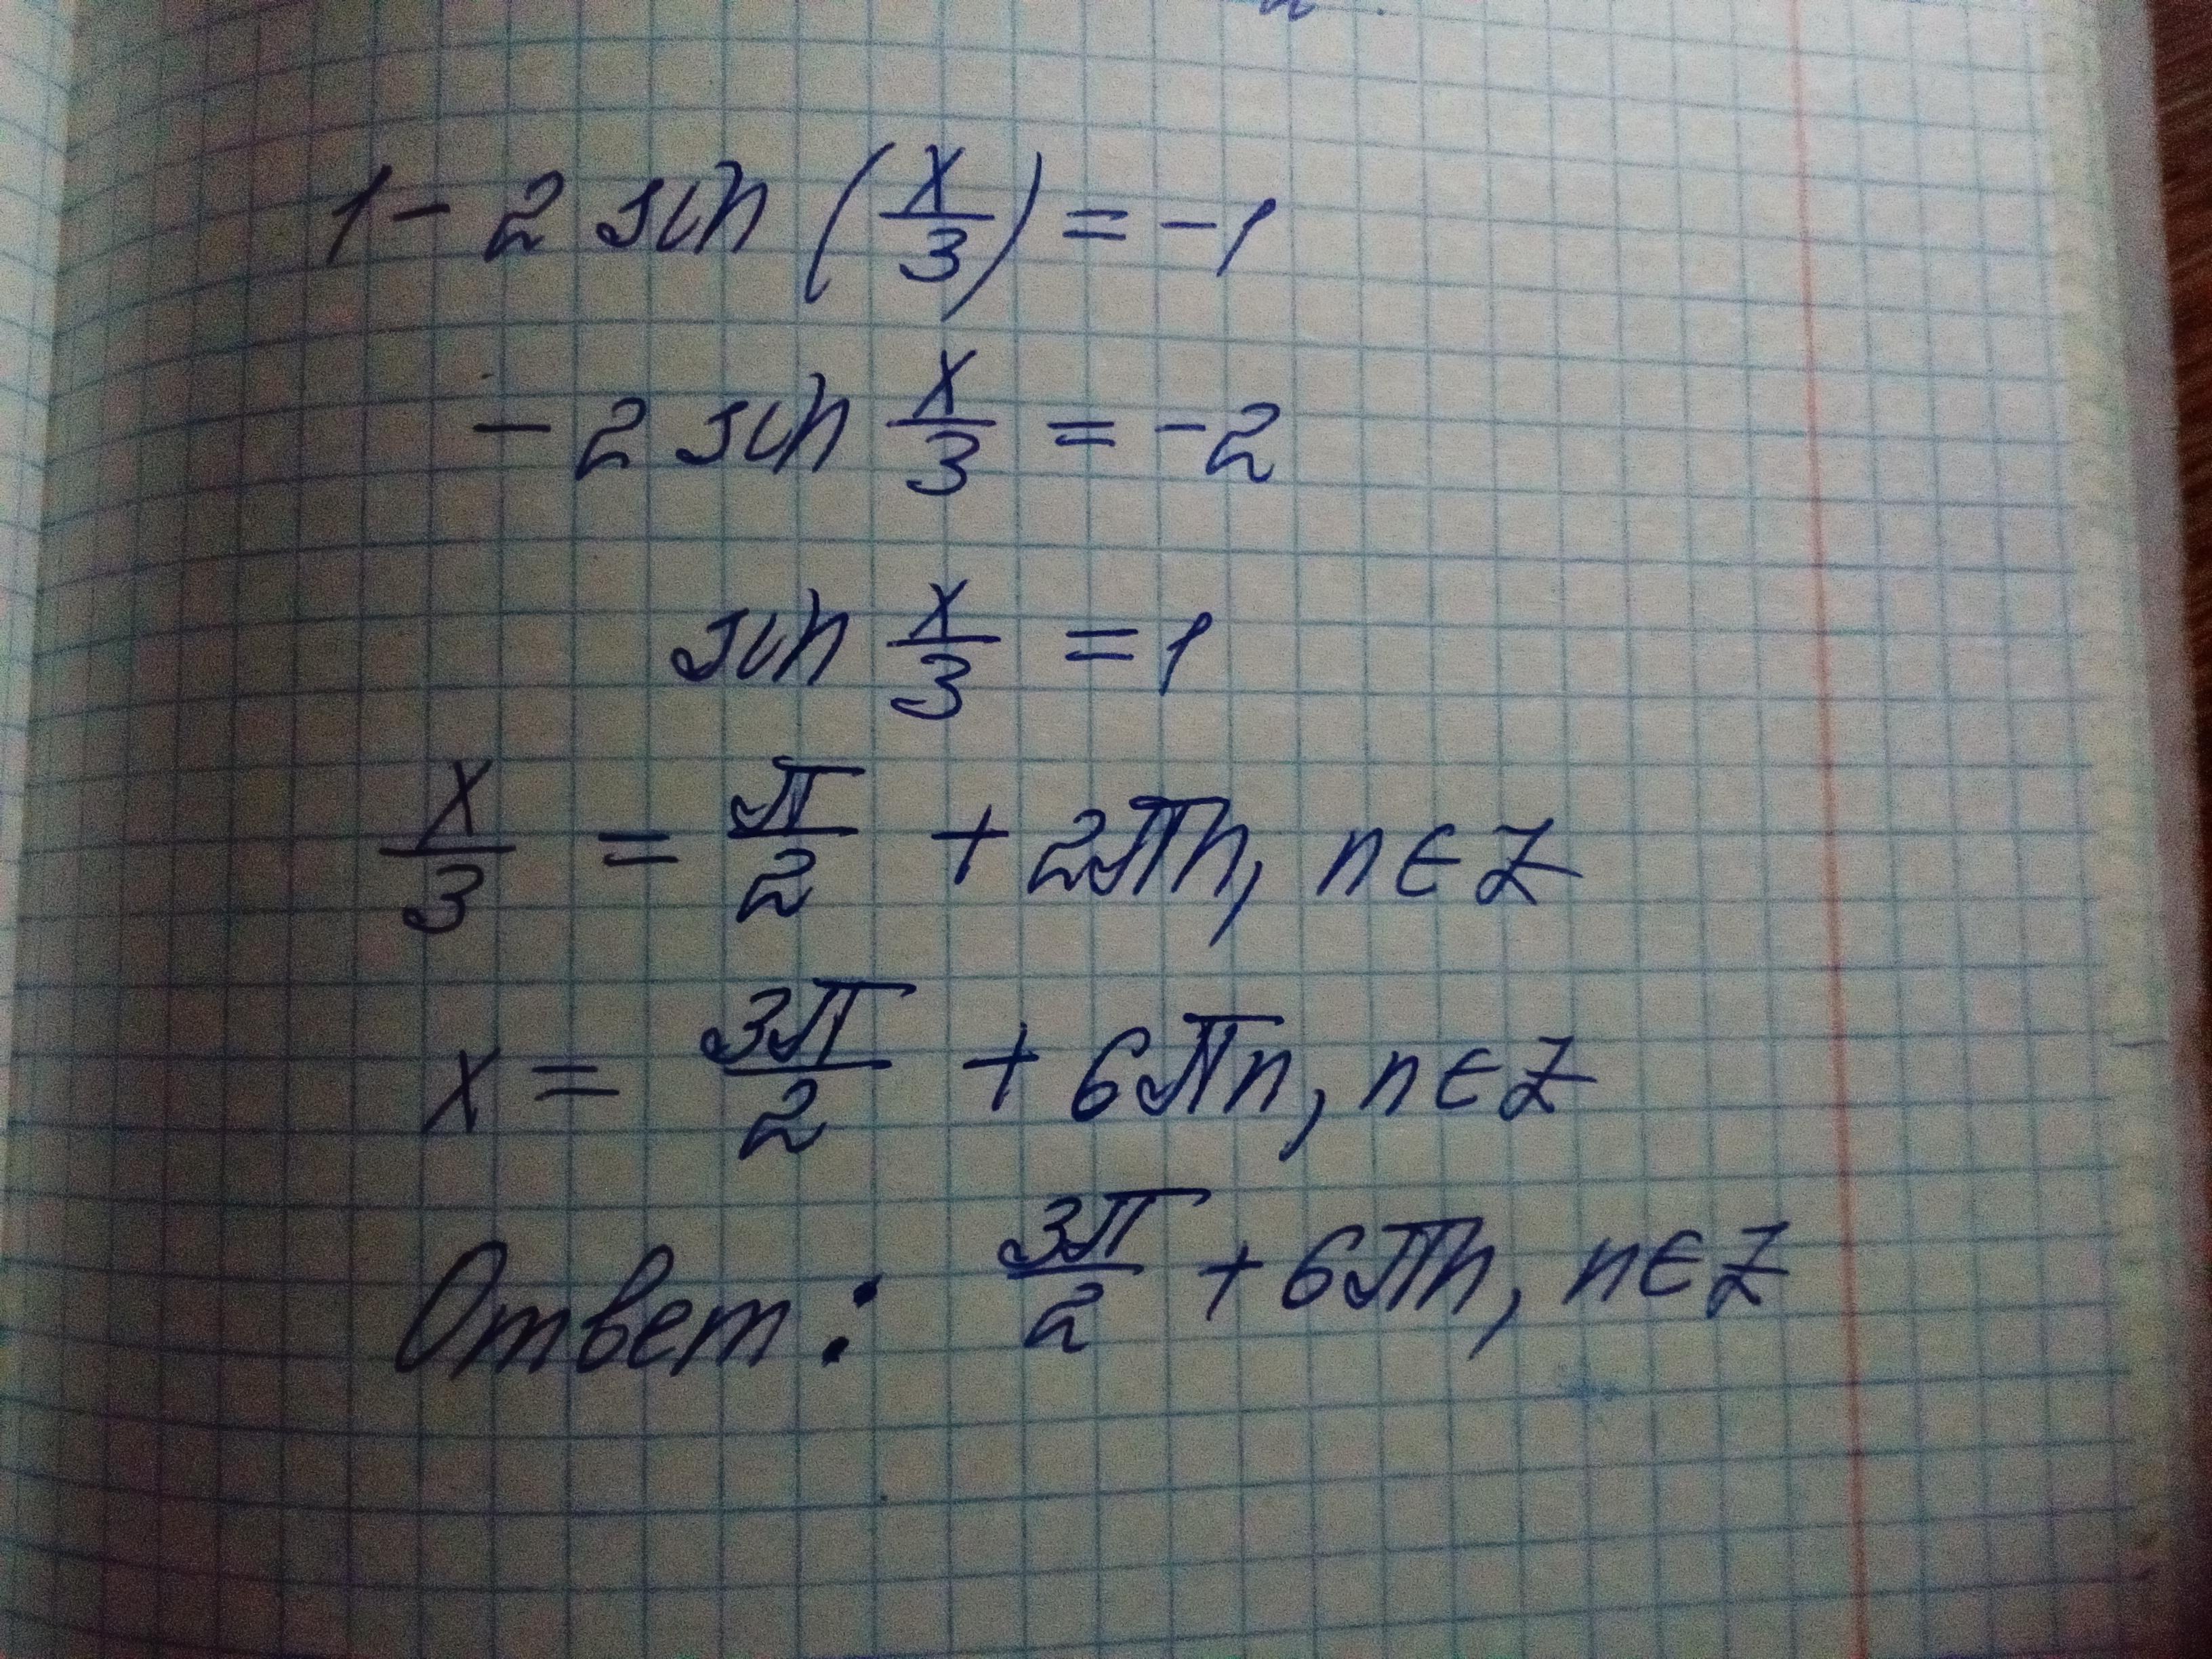 1 - 2 sin (x/3) = -1
- 2 sin x/3 = -2
sin x/3 = 1
x/3 = π/2 + 2πn, n ∈ Z
x = 3π/2 + 6πn, n ∈ Z
Ответ: 3π/2 + 6πn, n ∈ Z